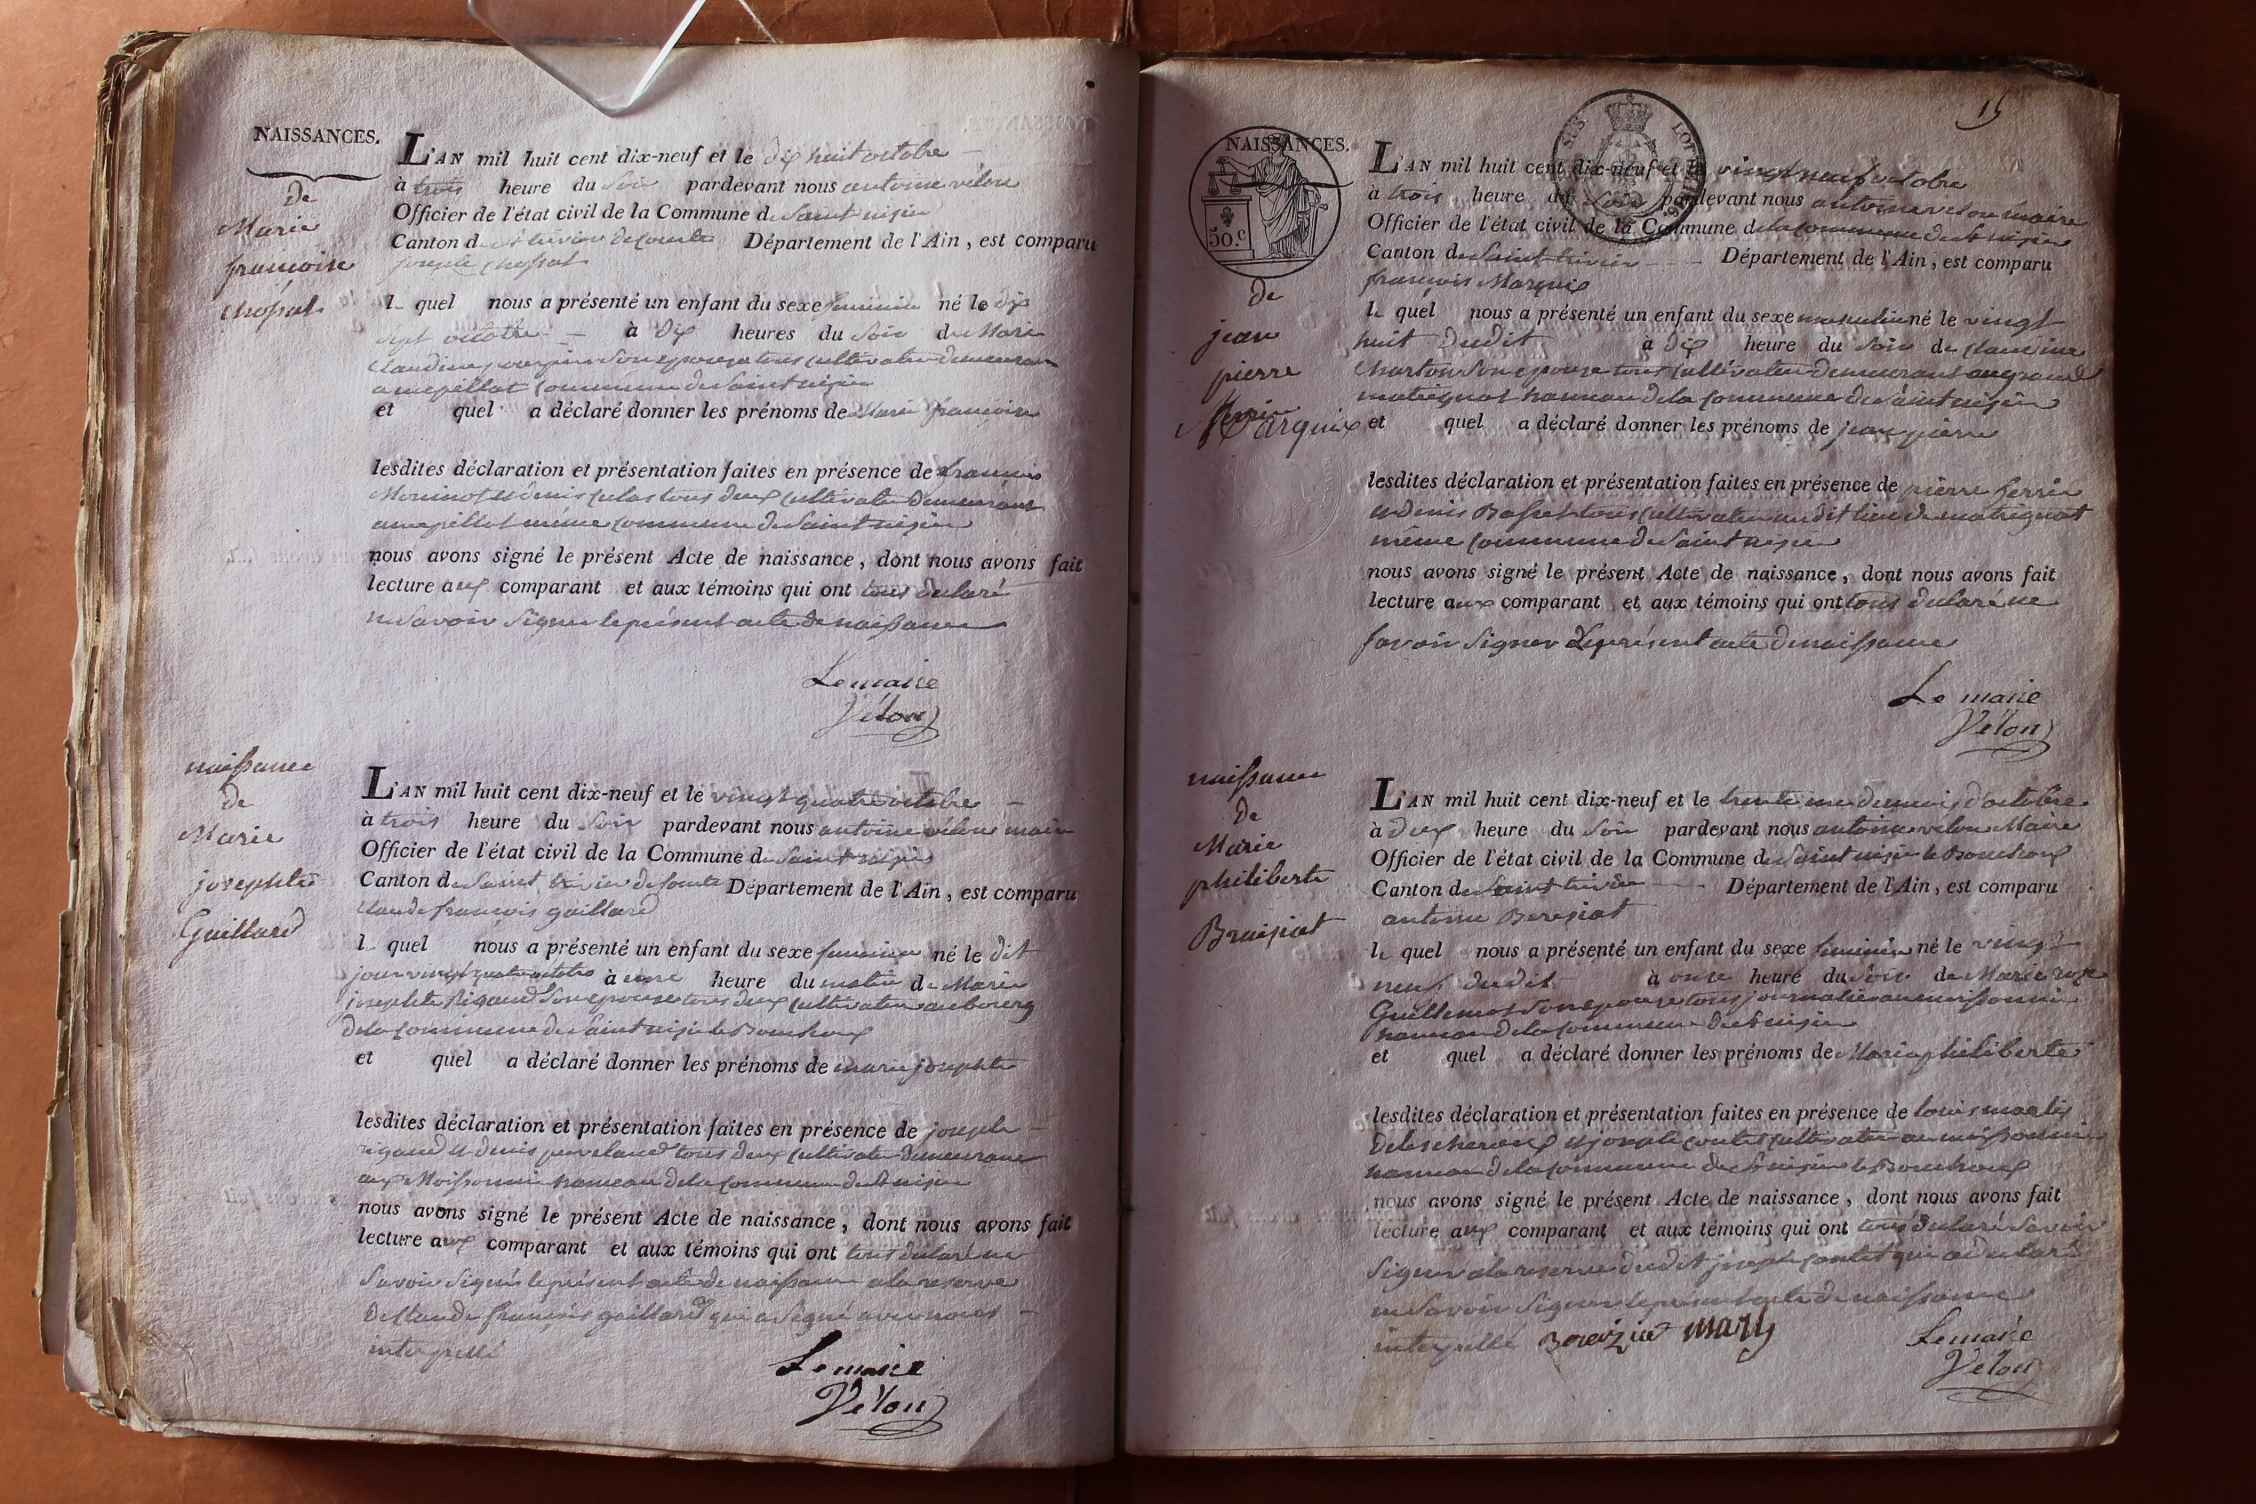 NAISSANCES.
de
Marie
françoise
Chossat
L'AN mil huit cent dix-neuf et le dix huit octobre
à trois heure du Soir pardevant nous antoine vélon
Officier de l'état civil de la Commune de Saint nizier
Canton de St trivier de Courtes Département de l'Ain, est comparu
joseph Chossat
le quel nous a présenté un enfant du sexe feminin né le dix
sept octobre à dix heures du Soir de Marie
Claudine son epouse tous cultivateur demeurant
commune de Saint nizier
et quel a déclaré donner les prénoms de Marie françoise
lesdites déclaration et présentation faites en présence de françois
Moninot et denis tous deux cultivateur demeurant
même commune de Saint nizier
nous avons signé le présent Acte de naissance, dont nous avons fait
lecture aux comparant et aux témoins qui ont tous déclaré
ne Savoir Signer le présent acte de naissance
Le maire
Vélon
naissance
de
Marie
josephte
Guillard
L'AN mil huit cent dix-neuf et le vingt quatre octobre
à trois heure du Soir pardevant nous antoine vélon maire
Officier de l'état civil de la Commune de Saint nizier
Canton de Saint trivier de Courtes Département de l'Ain, est comparu
Claude françois guillard
le quel nous a présenté un enfant du sexe feminin né le dit
jour vingt quatre octobre à onze heure du matin de Marie
josephte Rigaud Son epouse tous deux cultivateur au bourg
de la Commune de Saint nizier le Bouchoux
et quel a déclaré donner les prénoms de marie josephte
lesdites déclaration et présentation faites en présence de joseph
rigaud et denis tous deux cultivateur demeurant
aux Moissonnier hameau de la commune de St nizier
nous avons signé le présent Acte de naissance, dont nous avons fait
lecture aux comparant et aux témoins qui ont tous déclaré ne
Savoir Signer le présent acte de naissance a la reserve
de Claude françois guillard qui a Signé avec nous
interpellé
Le maire
Vélon
15
NAISSANCES.
50.c
de
jean
pierre
Marguix
L'AN mil huit cent dix-neuf et le vingt neuf octobre
à trois heure du Soir pardevant nous antoine velon maire
Officier de l'état civil de la Commune de la Commune de St nizier
Canton de Saint trivier Département de l'Ain, est comparu
françois Marguix
le quel nous a présenté un enfant du sexe masculin né le vingt
huit dudit à dix heure du Soir de Claudine
Charton Son epouse tous cultivateur demeurant au grand
matrignat hameau de la Commune de Saint nizier
et quel a déclaré donner les prénoms de jean pierre
lesdites déclaration et présentation faites en présence de pierre ferrier
et denis Basset tous cultivateur audit lieu de matrignat
même Commune de Saint nizier
nous avons signé le présent Acte de naissance, dont nous avons fait
lecture aux comparant et aux témoins qui ont tous déclaré ne
Savoir Signer le présent acte de naissance
Le maire
Vélon
naissance
de
Marie
philiberte
L'AN mil huit cent dix-neuf et le trente une du mois d'octobre
à deux heure du Soir pardevant nous antoine velon Maire
Officier de l'état civil de la Commune de Saint nizier le Bouchoux
Canton de Saint trivier Département de l'Ain, est comparu
antoine Bereziat
le quel nous a présenté un enfant du sexe feminin né le vingt
neuf dudit à onze heure du Soir de Marie roze
Guillemot Son epouse tous journalier au moissonnier
hameau de la Commune de St nizier
et quel a déclaré donner les prénoms de Marie philiberte
lesdites déclaration et présentation faites en présence de louis
et joseph cultivateur au moissonnier
hameau de la Commune de St nizier le Bouchoux
nous avons signé le présent Acte de naissance, dont nous avons fait
lecture aux comparant et aux témoins qui ont tous déclaré Savoir
Signer a la reserve dudit joseph qui a déclaré
ne Savoir Signer le présent acte de naissance
interpellé
Le maire
Vélon